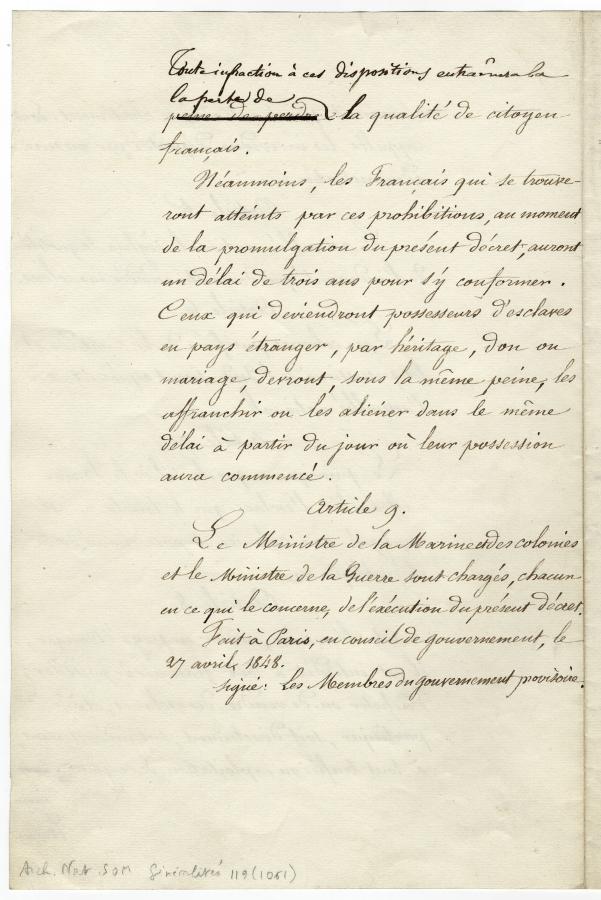 Toute infraction à ces dispositions entraînera la
la perte de
peine de perdre la qualité de citoyen
français.
Néanmoins, les Français qui se trouve-
ront atteints par ces prohibitions, au moment
de la promulgation du présent décret, auront
un délai de trois ans pour s'y conformer.
Ceux qui deviendront possesseurs d'esclaves
en pays étranger, par héritage, don ou
mariage, devront, sous la même peine, les
affranchir ou les aliéner dans le même
délai à partir du jour où leur possession
aura commencé.
Article 9.
Le Ministre de la Marine et des colonies
et le Ministre de la Guerre sont chargés, chacun
en ce qui le concerne, de l'exécution du présent décret.
Fait à Paris, en conseil de gouvernement, le
27 avril 1848.
signé: Les Membres du gouvernement provisoire.
Arch. Nat. SOM Généralités 119 (1061)